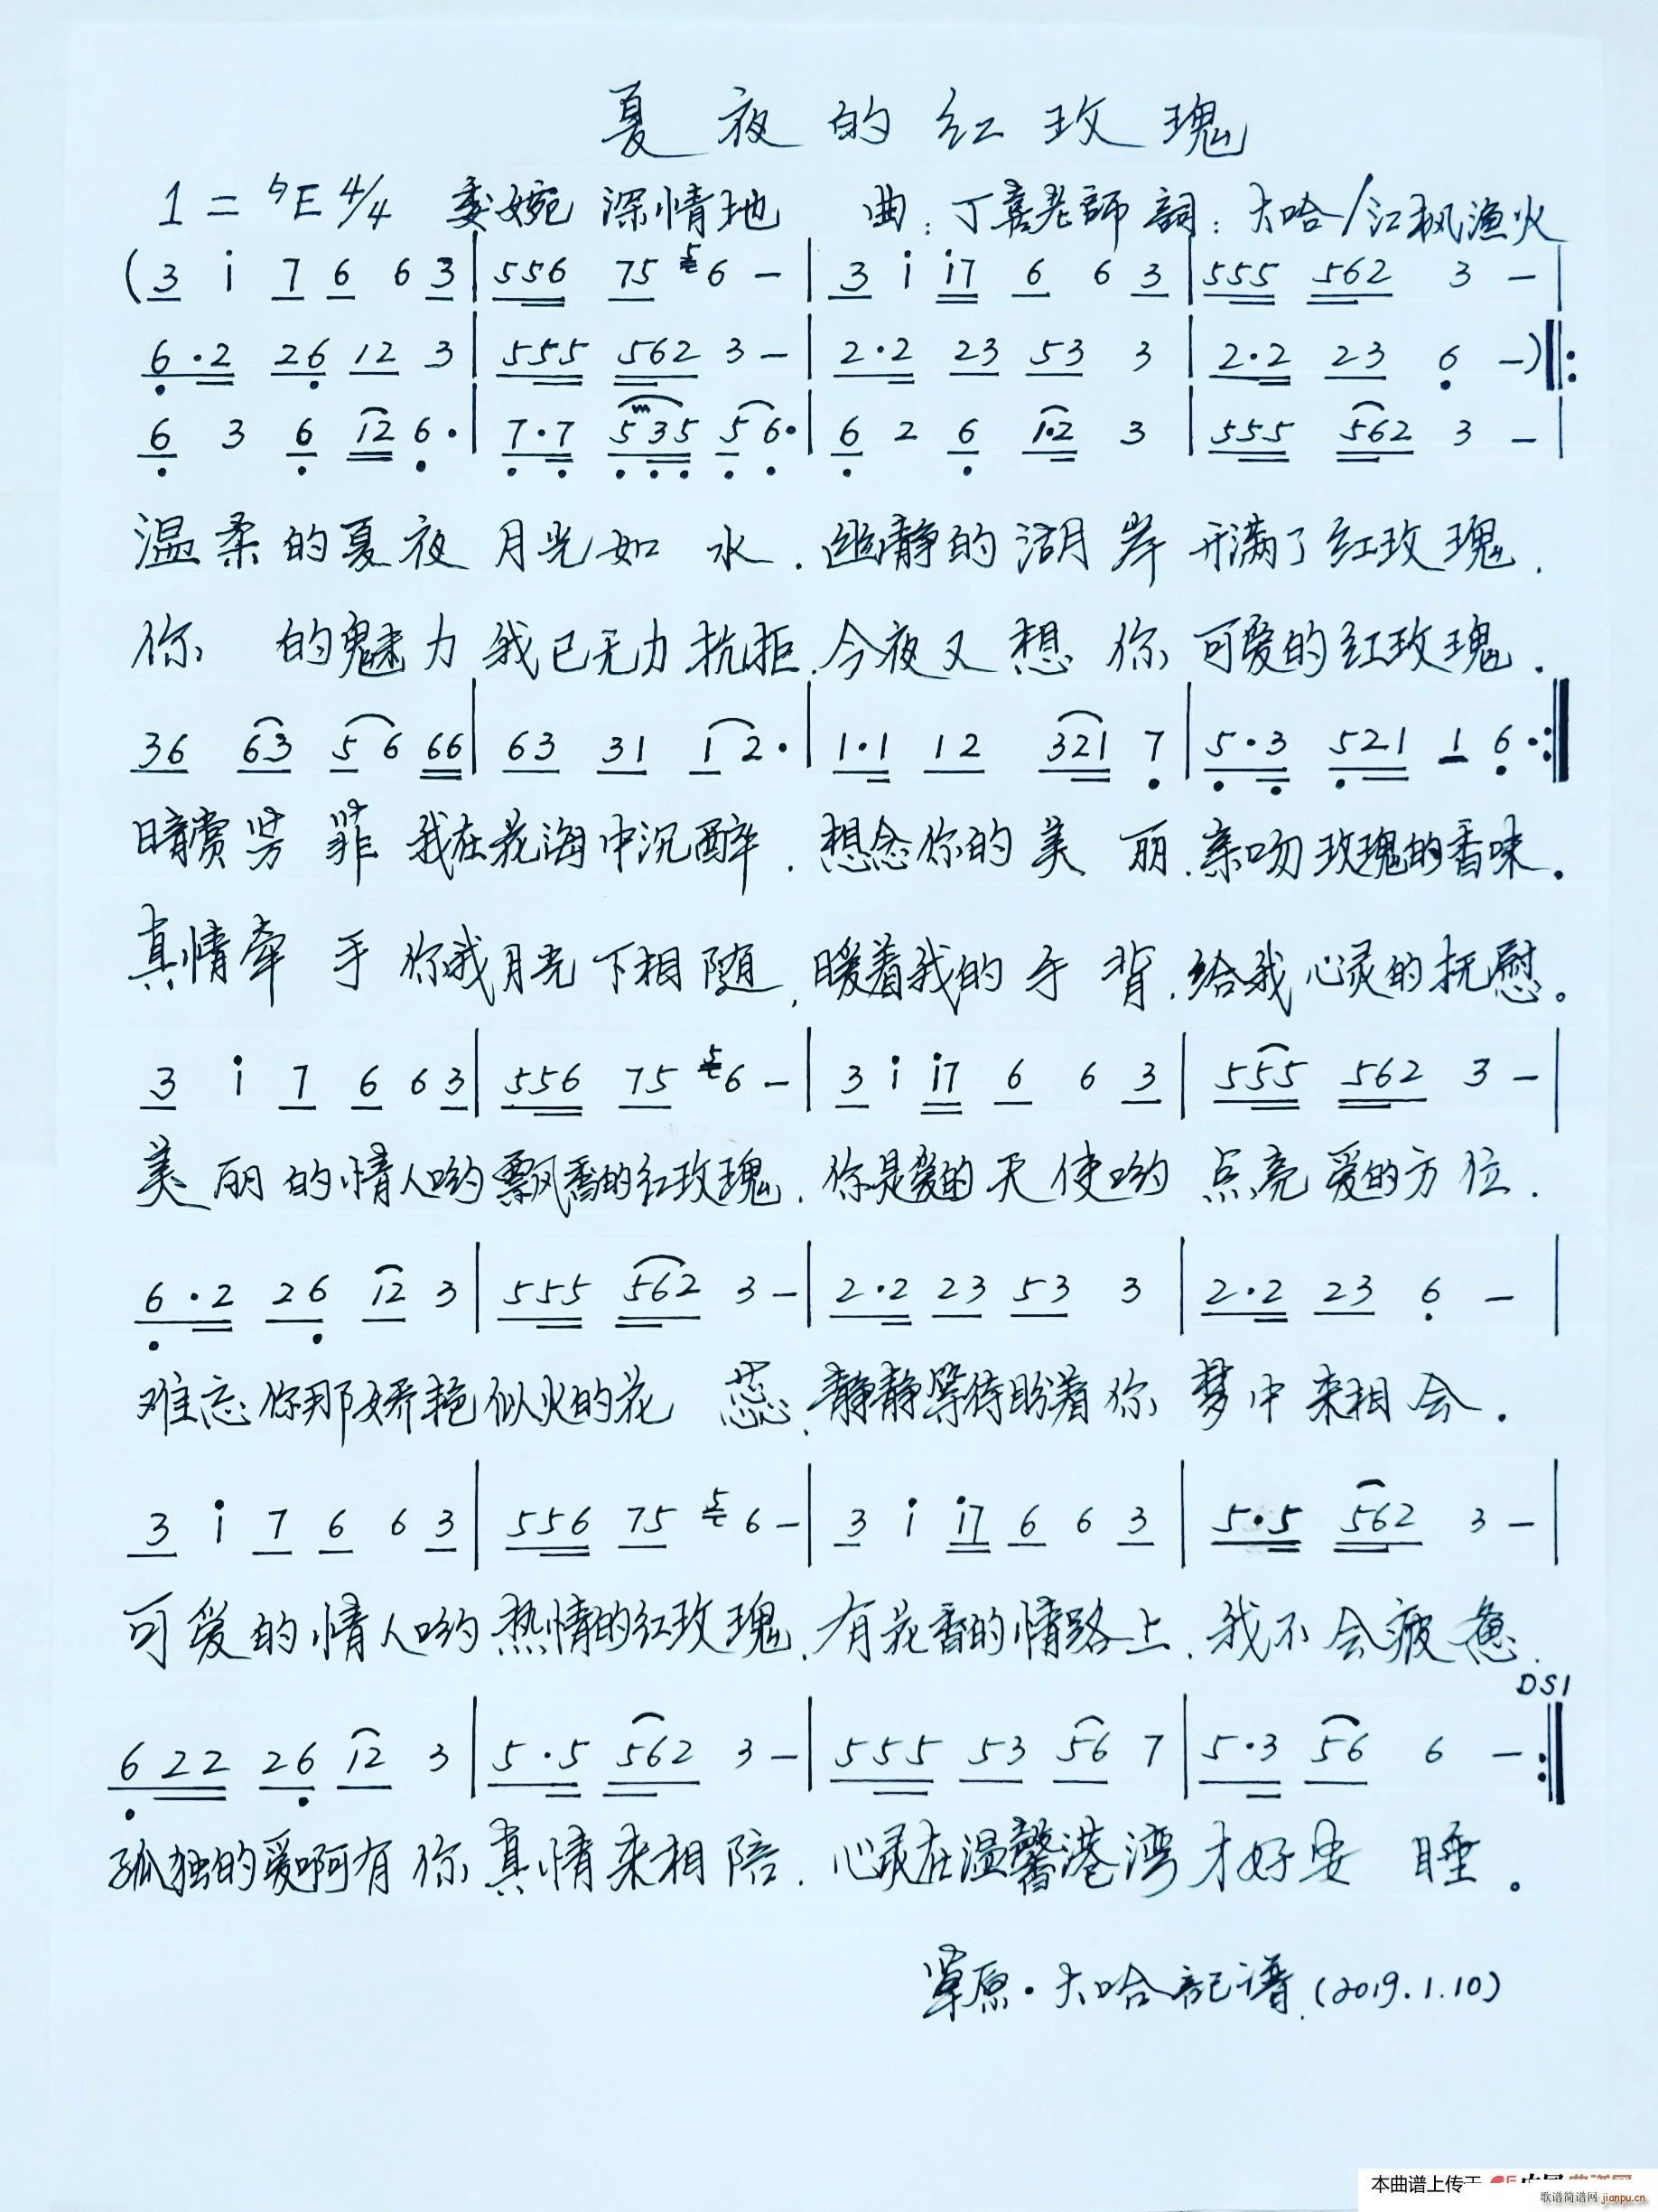 夏夜的红玫瑰
1=♭E 4/4 委婉 深情地 曲:丁喜老師 詞:大哈/江枫渔火
(3 i 7 6 6 3 | 556 75 5 6 — | 3 i i7 6 6 3 | 555 562 3 — |
6·2 26 12 3 | 555 562 3 — | 2·2 23 53 3 | 2·2 23 6 —)‖:
6 3 6 12 6· | 7·7 535 5 6· | 6 2 6 1·2 3 | 555 562 3 — |
温柔的夏夜 月光如 水.幽静的湖岸 开满了红玫瑰.
你 的魅力 我已无力抗拒.今夜又想 你 可爱的红玫瑰.
36 63 5 6 66 | 63 31 1 2· | 1·1 12 321 7 | 5·3 521 1 6· :‖
暗赏芳 菲 我在花海中沉醉.想念你的美 丽.亲吻玫瑰的香味。
真情牵 手 你我月光下相随,暖着我的手 背.给我心灵的抚慰。
3 i 7 6 6 3 | 556 75 5 6 — | 3 i i7 6 6 3 | 555 562 3 — |
美丽的情人哟 飘香的红玫瑰.你是爱的天使哟 点亮爱的方位.
6·2 26 12 3 | 555 562 3 — | 2·2 23 53 3 | 2·2 23 6 — |
难忘你那娇艳似火的花 蕊.静静等待盼着你 梦中来相会.
3 i 7 6 6 3 | 556 75 5 6 — | 3 i i7 6 6 3 | 5·5 562 3 — |
可爱的情人哟 热情的红玫瑰.有花香的情路上.我不会疲惫.
DS1
622 26 12 3 | 5·5 562 3 — | 555 53 56 7 | 5·3 56 6 — :‖
孤独的爱啊有你真情来相陪.心灵在温馨港湾才好安 睡。
草原·大哈記谱.(2019.1.10)
本曲谱上传于
歌谱简谱网 jianpu.cn